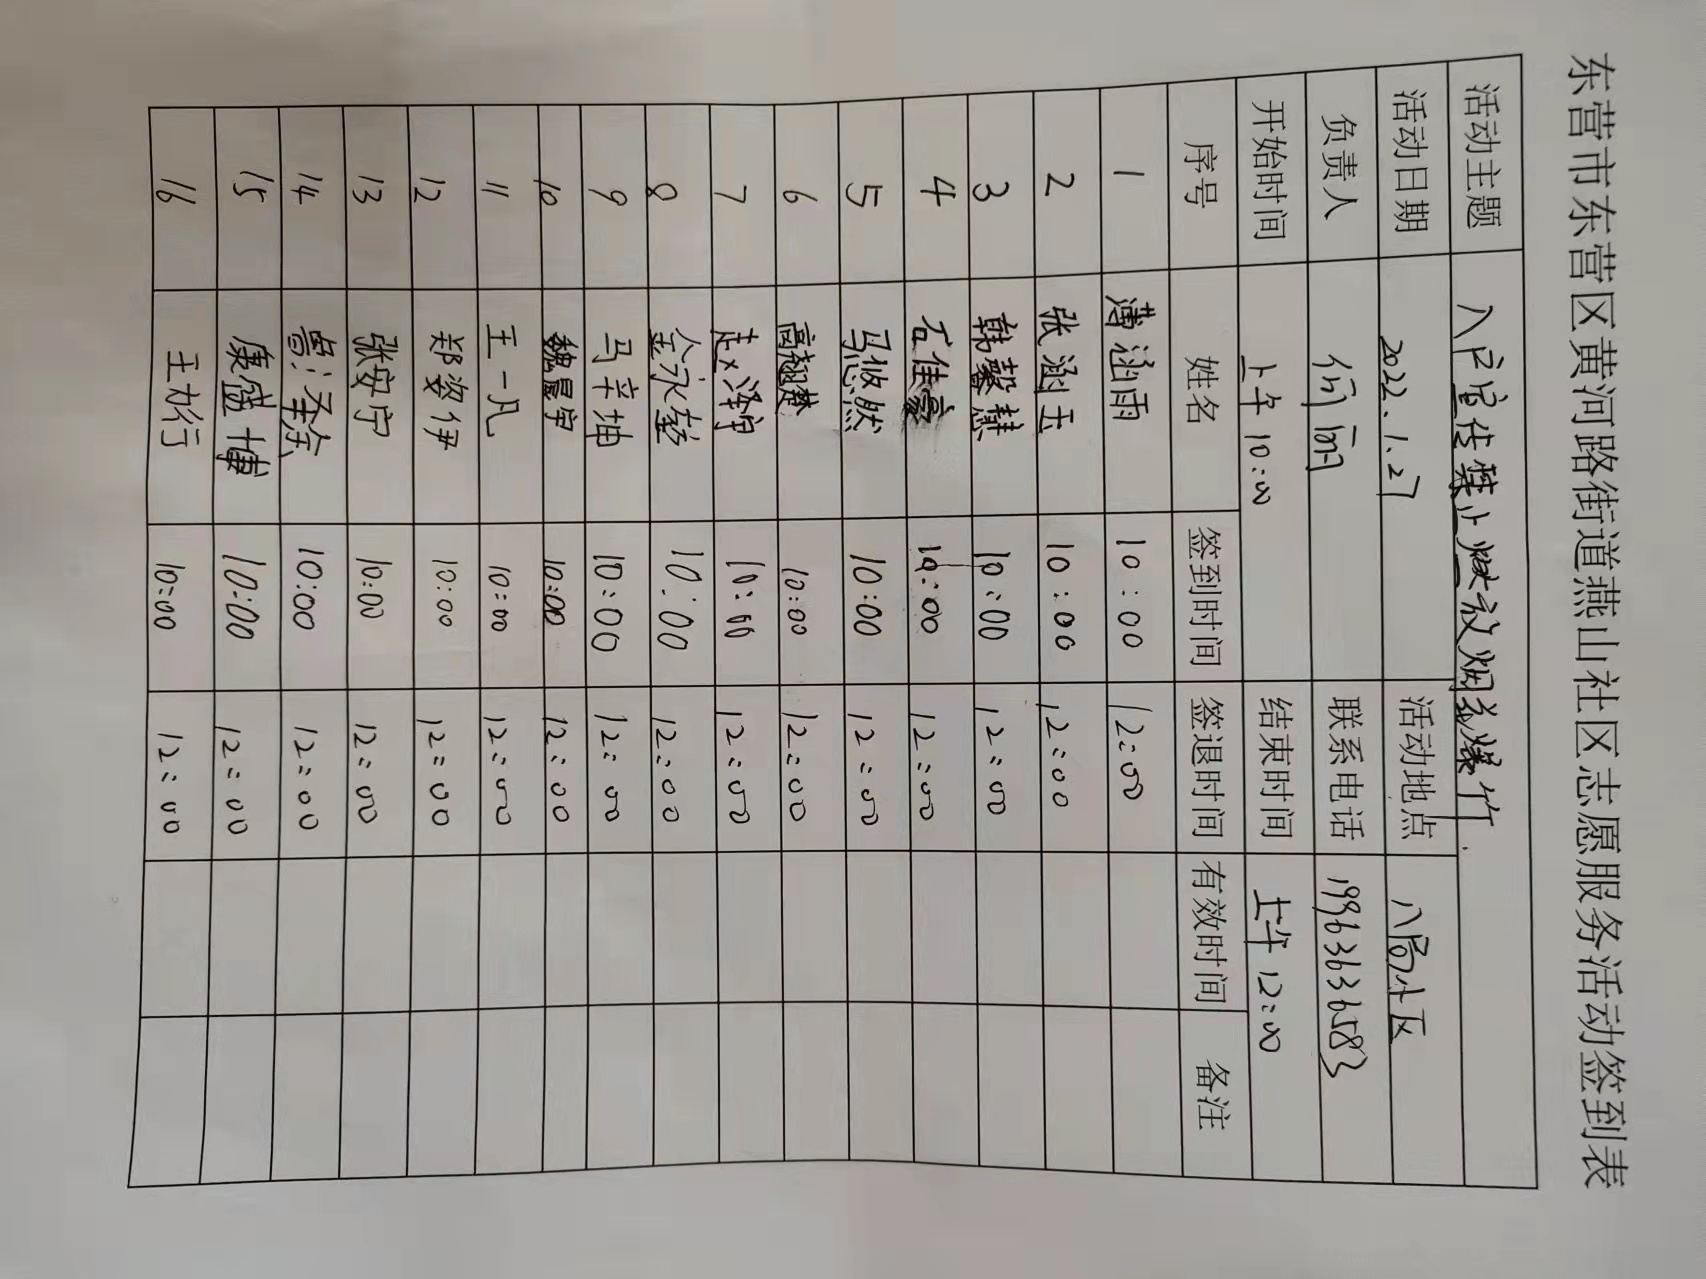 东营市东营区黄河路街道燕山社区志愿服务活动签到表
活动主题 入户宣传禁止燃放烟花爆竹.
活动日期 2022.1.27 活动地点 八局小区
负责人 何丽 联系电话 19963636583
开始时间 上午10:00 结束时间 上午12:00
序号 姓名 签到时间 签退时间 有效时间 备注
1 薄涵雨 10:00 12:00
2 张涵玉 10:00 12:00
3 韩馨慧 10:00 12:00
4 石佳豪 10:00 12:00
5 马攸然 10:00 12:00
6 高翘楚 10:00 12:00
7 赵泽宇 10:00 12:00
8 10:00 12:00
9 马辛抽 10:00 12:00
10 魏晨宇 10:00 12:00
11 王一凡 10:00 12:00
12 郑姿伊 10:00 12:00
13 张安宁 10:00 12:00
14 10:00 12:00
15 康盛博 10:00 12:00
16 王力行 10:00 12:00